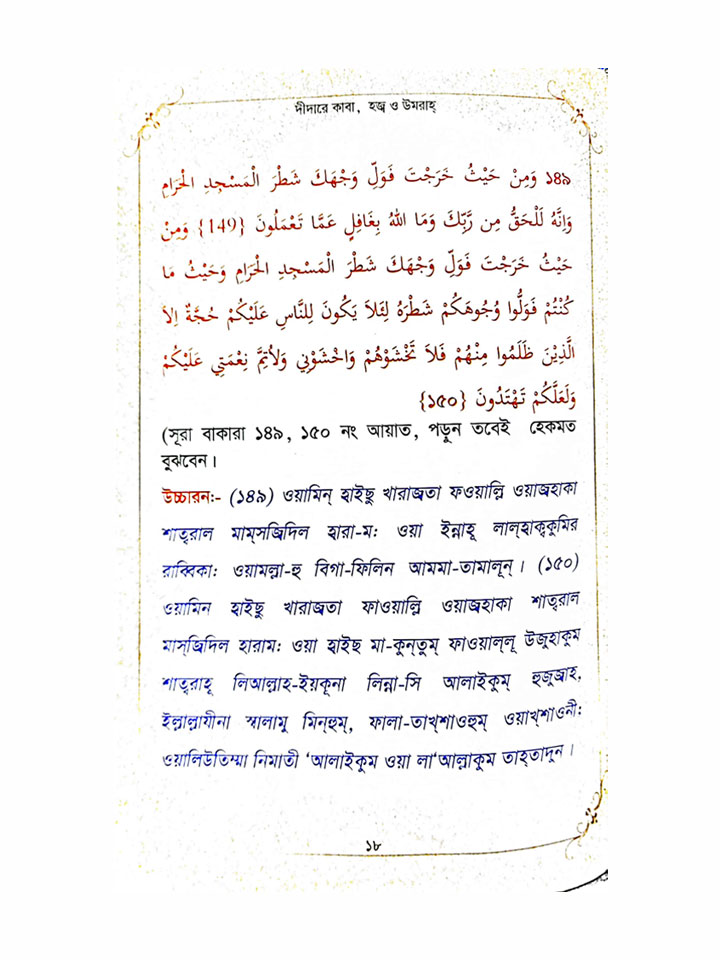 দীদারে কাবা, হজ্ব ও উমরাহ্
১৪৯ وَمِنْ حَيْثُ خَرَجْتَ فَوَلِّ وَجْهَكَ شَطْرَ الْمَسْجِدِ الْحَرَامِ
وَإِنَّهُ لَلْحَقُّ مِن رَّبِّكَ وَمَا اللهُ بِغَافِلٍ عَمَّا تَعْمَلُونَ {149} وَمِنْ
حَيْثُ خَرَجْتَ فَوَلِّ وَجْهَكَ شَطْرَ الْمَسْجِدِ الْحَرَامِ وَحَيْثُ مَا
كُنْتُمْ فَوَلُّوا وُجُوهَكُمْ شَطْرَهُ لِئَلاَ يَكُونَ لِلنَّاسِ عَلَيْكُمْ حُجَّةٌ اِلاَ
الَّذِيْنَ ظَلَمُوا مِنْهُمْ فَلاَ تَخْشَوْهُمْ وَاخْشَوْنِي وَلأُتِمَّ نِعْمَتِي عَلَيْكُمْ
وَلَعَلَّكُمْ تَهْتَدُونَ {১৫০}
(সূরা বাকারা ১৪৯, ১৫০ নং আয়াত, পড়ুন তবেই হেকমত
বুঝবেন।
উচ্চারন:- (১৪৯) ওয়ামিন্ হাইছু খারাজতা ফওয়াল্লি ওয়াজহাকা
শাত্বরাল মাম্সজিদিল হারা-ম: ওয়া ইন্নাহূ লাল্হাক্বকুমির
রাব্বিকা: ওয়ামল্লা-হু বিগা-ফিলিন আমমা-তামালূন্। (১৫০)
ওয়ামিন হাইছু খারাজতা ফাওয়াল্লি ওয়াজহাকা শাত্বরাল
মাস্জিদিল হারাম: ওয়া হাইছ মা-কুন্তুম্ ফাওয়াল্লূ উজুহাকুম
শাত্বরাহূ লিআল্লাহ-ইয়কূনা লিন্না-সি আলাইকুম্ হুজুজ্বাহ,
ইল্লাল্লাযীনা স্বালামু মিন্হুম্, ফালা-তাখ্শাওহুম্ ওয়াখ্শাওনী:
ওয়ালিউতিম্মা নিমাতী ‘আলাইকুম ওয়া লা‘আল্লাকুম তাহ্তাদুন।
১৮